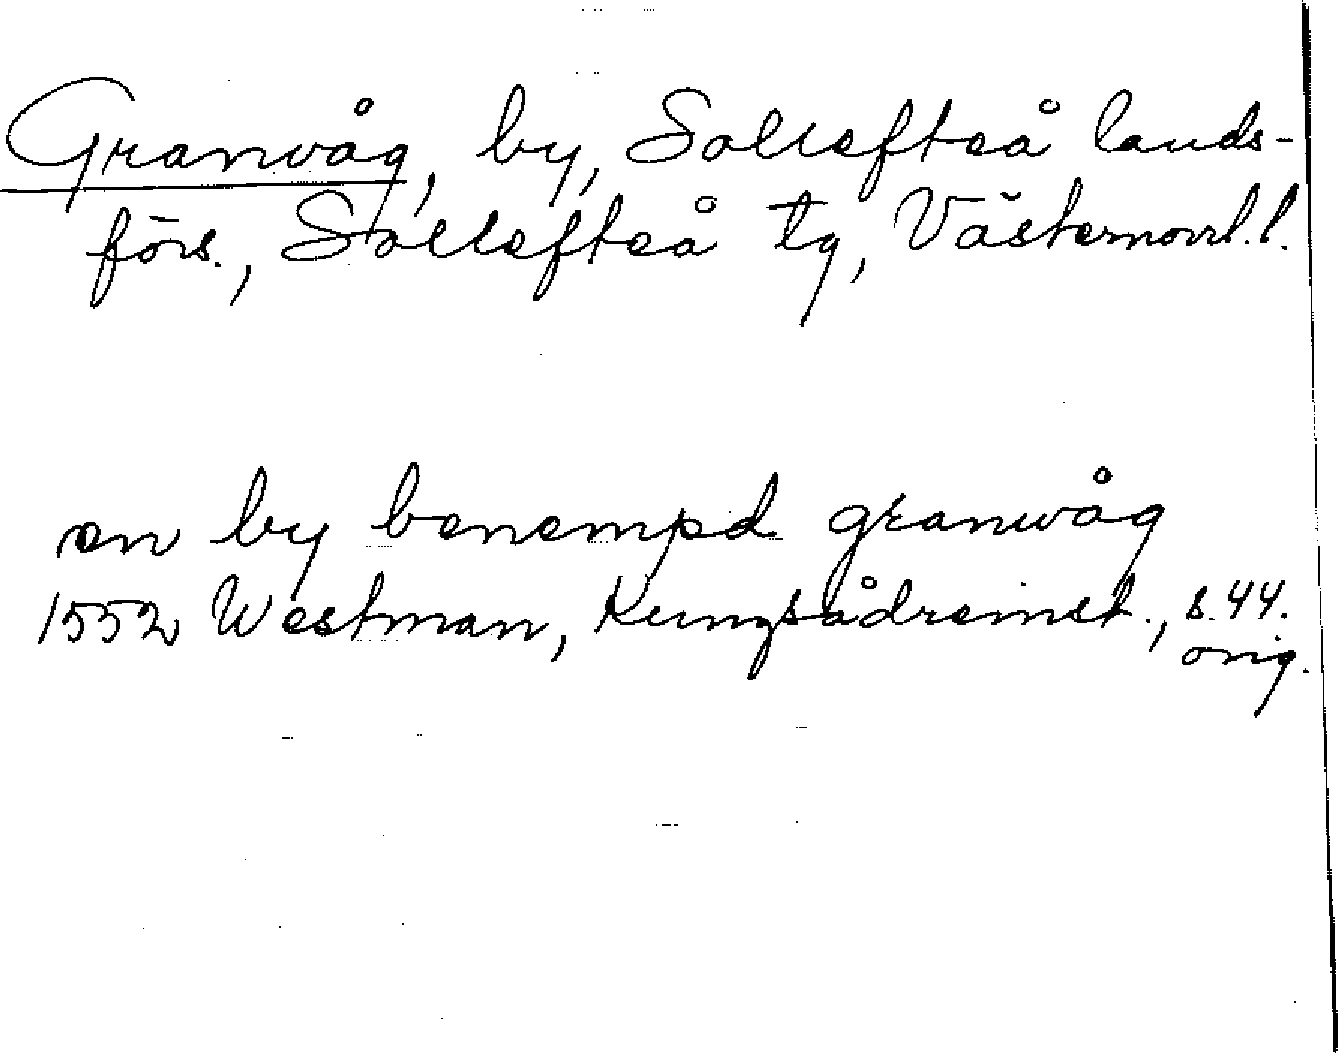 Granvåg, by, Sollefteå lands-
förs., Sollefteå tg, Västernorrl. l.
en by benempd granwåg
1552 Westman, Kungsådreinst., s. 44.
orig.